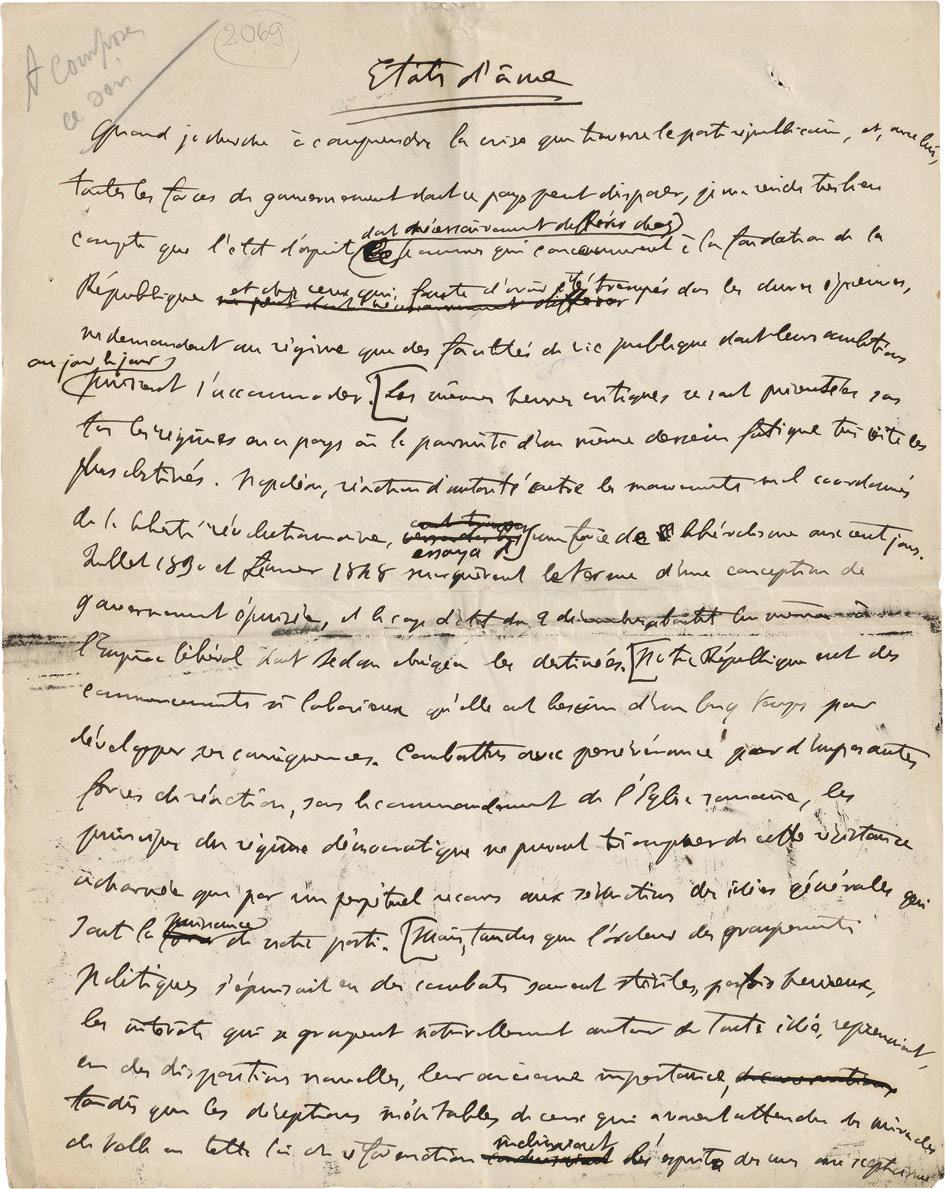 A composer
ce soir
2069
Etats d'âme
Quand je cherche à comprendre la crise que traverse le parti républicain, et, avec lui,
toutes les forces de gouvernement dont ce pays peut disposer, je me rends très bien
doit nécessairement différer chez
compte que l'état d'esprit les hommes qui concoururent à la fondation de la
et chez ceux qui, faute d'avoir été trempés dans les dures épreuves,
République ne peut doit nécessairement différer
ne demandent au régime que des facilités de vie publique dont leurs ambitions
au jour le jour
puissent s'accommoder. [Les mêmes heures critiques se sont présentées sous
tous les régimes en ce pays où la poursuite d'un même dessein fatigue très vite les
plus obstinés. Napoléon, réaction d'autorité contre les mouvements mal coordonnés
de la liberté révolutionnaire, essaya d'une farce de libéralisme aux cent jours.
Juillet 1830 et Février 1848 marquèrent le terme d'une conception de
gouvernement épuisée, et le coup d'état du 2 décembre aboutit lui-même à
l'Empire libéral dont Sedan abrégea les destinées. [Notre République eut des
commencements si laborieux qu'elle eut besoin d'un long temps pour
développer ses conséquences. Combattus avec persévérance par d'imposantes
forces de réaction, sous le commandement de l'Église romaine, les
principes du régime démocratique ne peuvent triompher de cette résistance
acharnée que par un perpétuel recours aux séductions des idées générales qui
puissance
font la force de notre parti. [Mais, tandis que l'ardeur des groupements
politiques s'épuisait en des combats souvent stériles, parfois heureux,
les intérêts qui se groupent naturellement autour de toute idée, reprenaient,
en des dispositions nouvelles, leur ancienne importance,
tandis que les déceptions inévitables de ceux qui avaient attendu des miracles
inclinaient
de la réformation conduisaient les esprits des uns au scepticisme